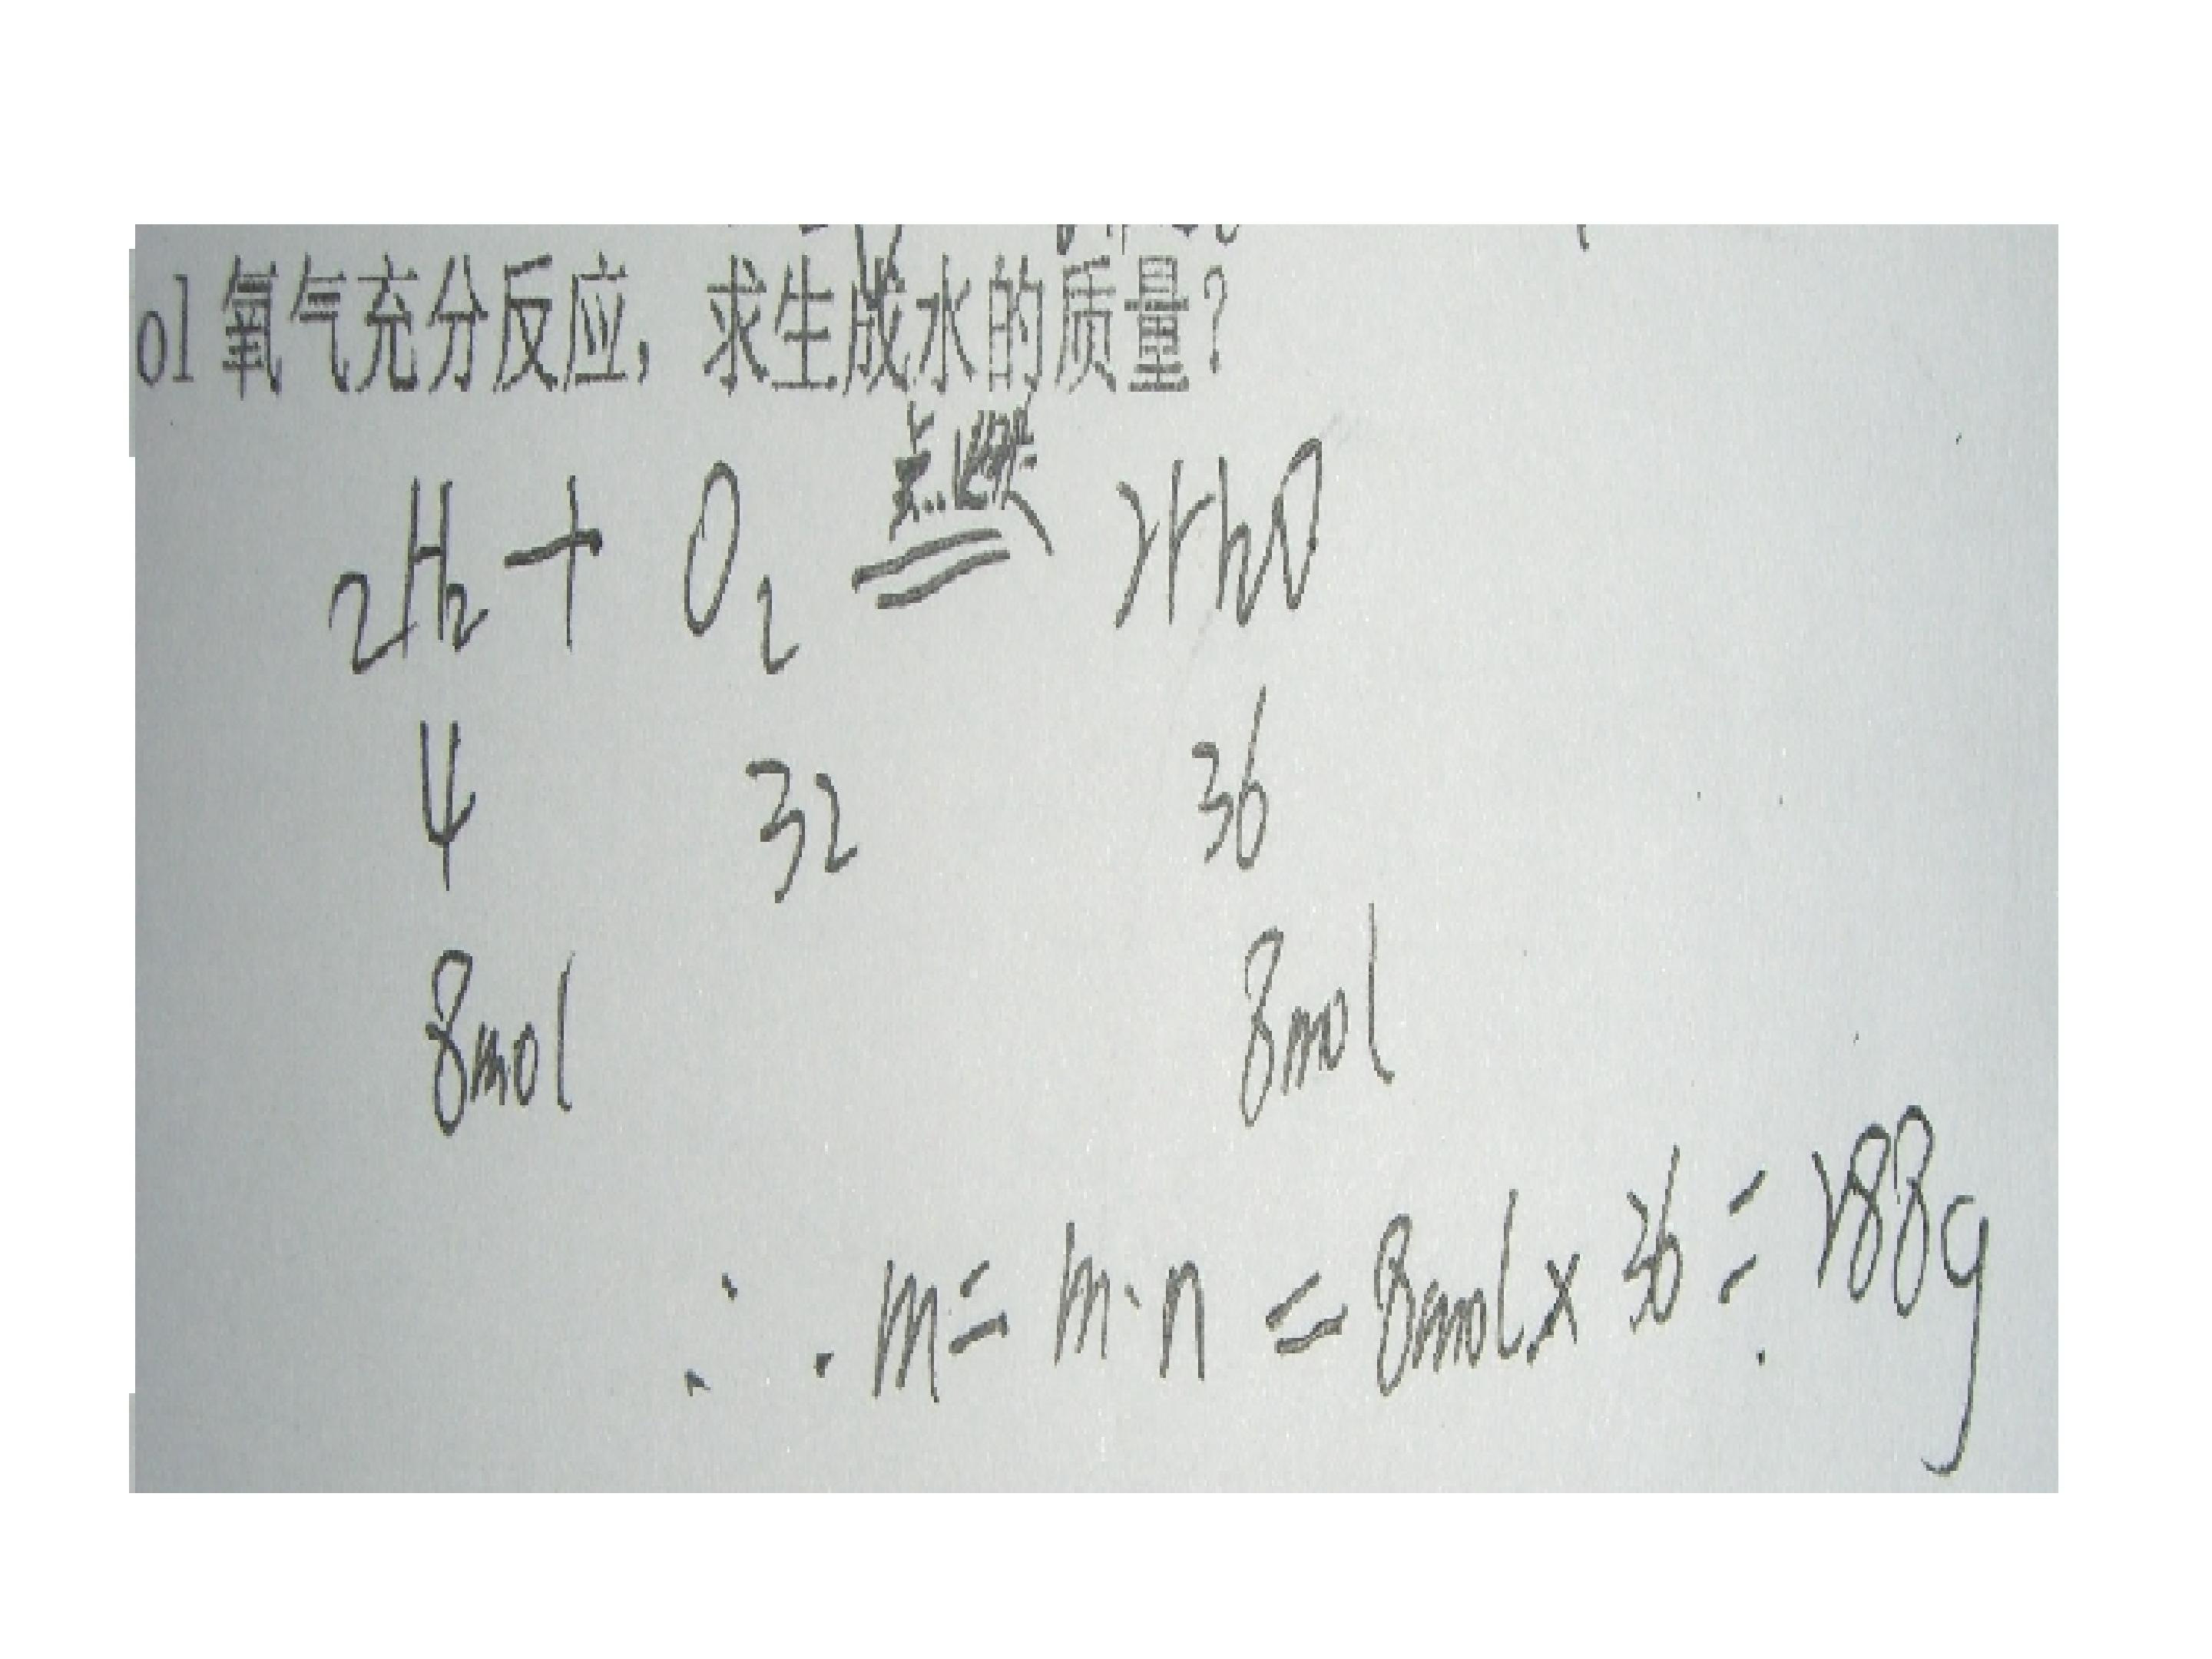 ol 氧气充分反应，求生成水的质量？
点燃
2H₂ + O₂ = 2H₂O
4 32 36
8mol 8mol
∴ m = m·n = 8mol × 36 = 288g